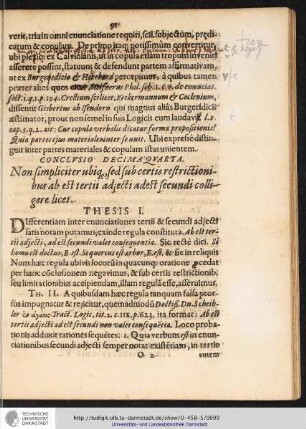 91
verit, triain omni enunciatione requiri, scil. subjectum, prædi-
catum & copulam. De primo itaq; potissimum convertitur,
ubi pleriq; ex Calvinianis, ut in copula etiam tropum invenire
asserere possint, statuunt & defendunt partem affirmativam,
ut ex Burgersdicio & percepimus, à quibus tamen
præter alios ques Phil. sub. l. 1. de enuncias.
sect. 1. q. 1. p. 194. Crocium scilicet, Keckermannum & Goclenium,
dissensit: dissentitur ab issendem qui magnus aliàs Burgersdicii
æstimator, prout non semel in suis Logicis eum laudavit, Le.
cap. 5. q. 2. ait: Cur copula verbalis dicatur forma propositionis?
Quia partes ejus materiales unit inter se. Ubi expresse distin-
guit inter partes materiales & copulam istas unientem.
CONCLUSIO DECIMAQVARTA.
Non simpliciter ubiq; sed sub certis restrictioni-
bus ab est tertii adjecti ad est secundi colli-
gere licet.
THESIS I.
Differentiam inter enunciationes tertii & secundi adjecti
satis notam putamus; exinde regula constituta. Ab est ter-
tii adjecti, ad est secundi valet consequentia. Sic recte dici. Si
homo est doctus, E. est. Si equus est arbor, E. est. & sic in reliquis
Num hæc regula ubivis locorum in quacunq; oratione procedat
per hanc coclusionem negavimus, & sub certis restrictionib.
seu limitationibus accipiendam, illam regulā esse, asseruimus.
TH. II. A quibusdam hæc regula tanquam falsa pror-
sus impugnatur & rejicitur, quemadmodū Doctiss. Dn. Scheib-
ler Tract. Logic. tit. 2. c. III. p. 623. ita format: Ab est
tertii adjecti ad est secundi non valet consequētia. Loco proba-
tionis adducit rationes sequētes. 1. Quia verbum est in enun-
ciationibus secundi adjecti semper notat existētiam, in tertio
O 2 autem
TECHNISCHE
UNIVERSITÄT
DARMSTADT
http://tudigit.ulb.tu-darmstadt.de/show/U-458-5/0099
Universitäts- und Landesbibliothek Darmstadt